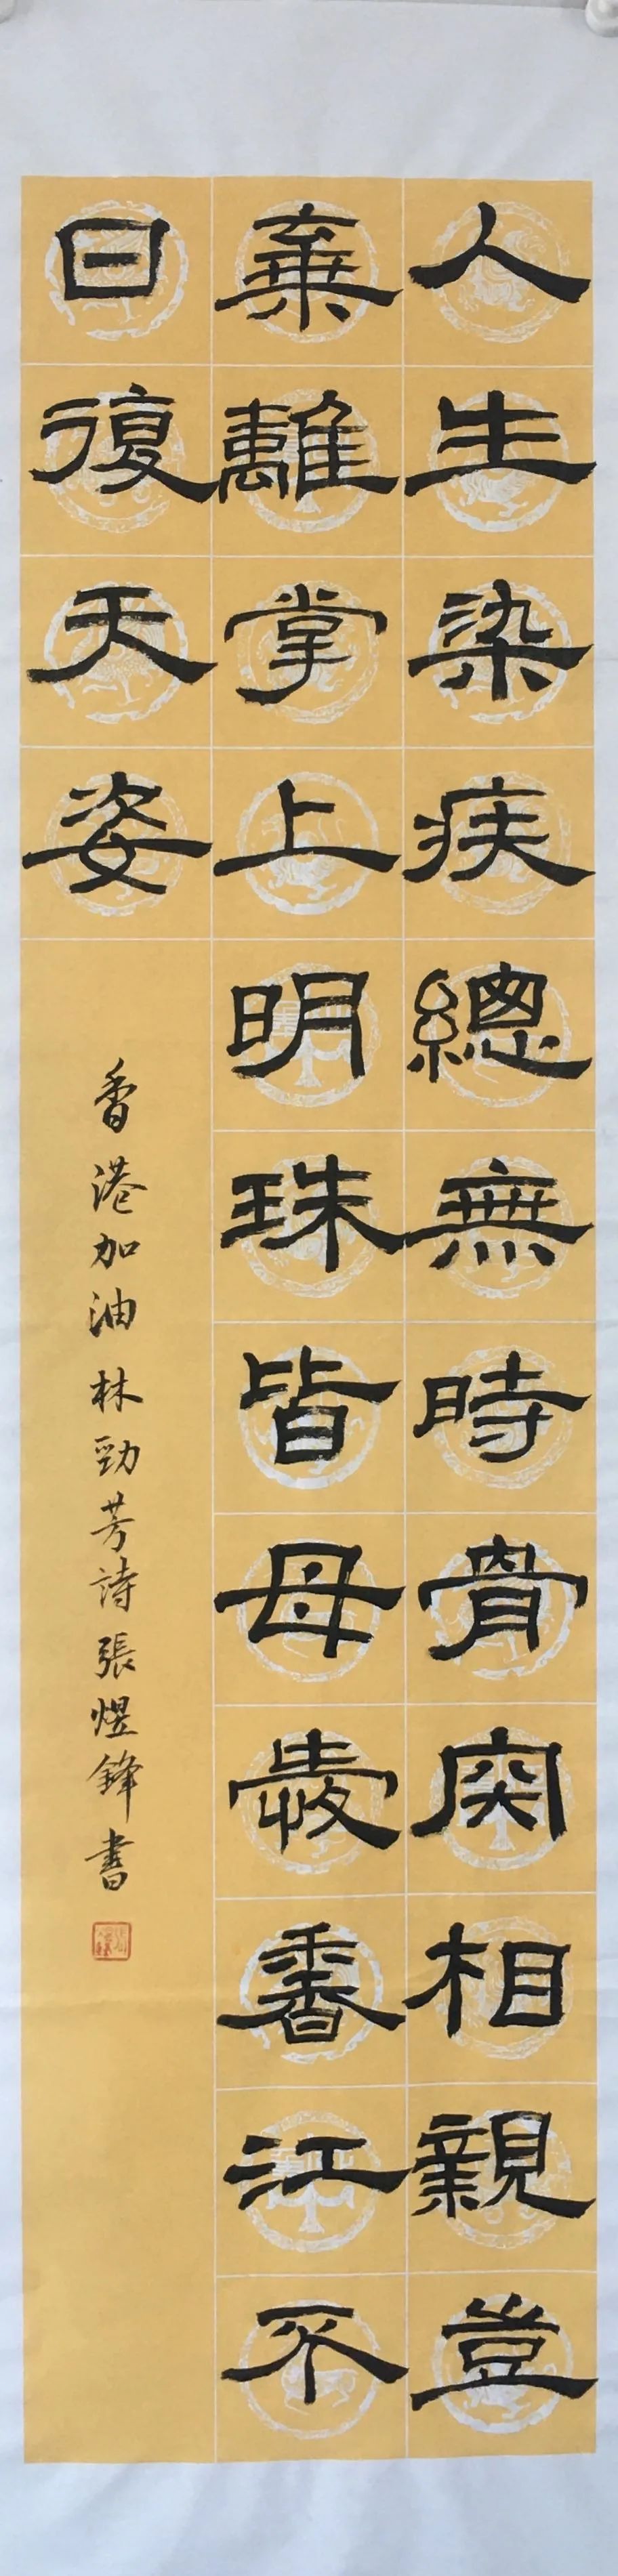 人生染疾總無時骨肉相親豈
棄離掌上明珠皆母愛香江不
日復天姿
香港加油 林勁芳詩 張煜鋒書